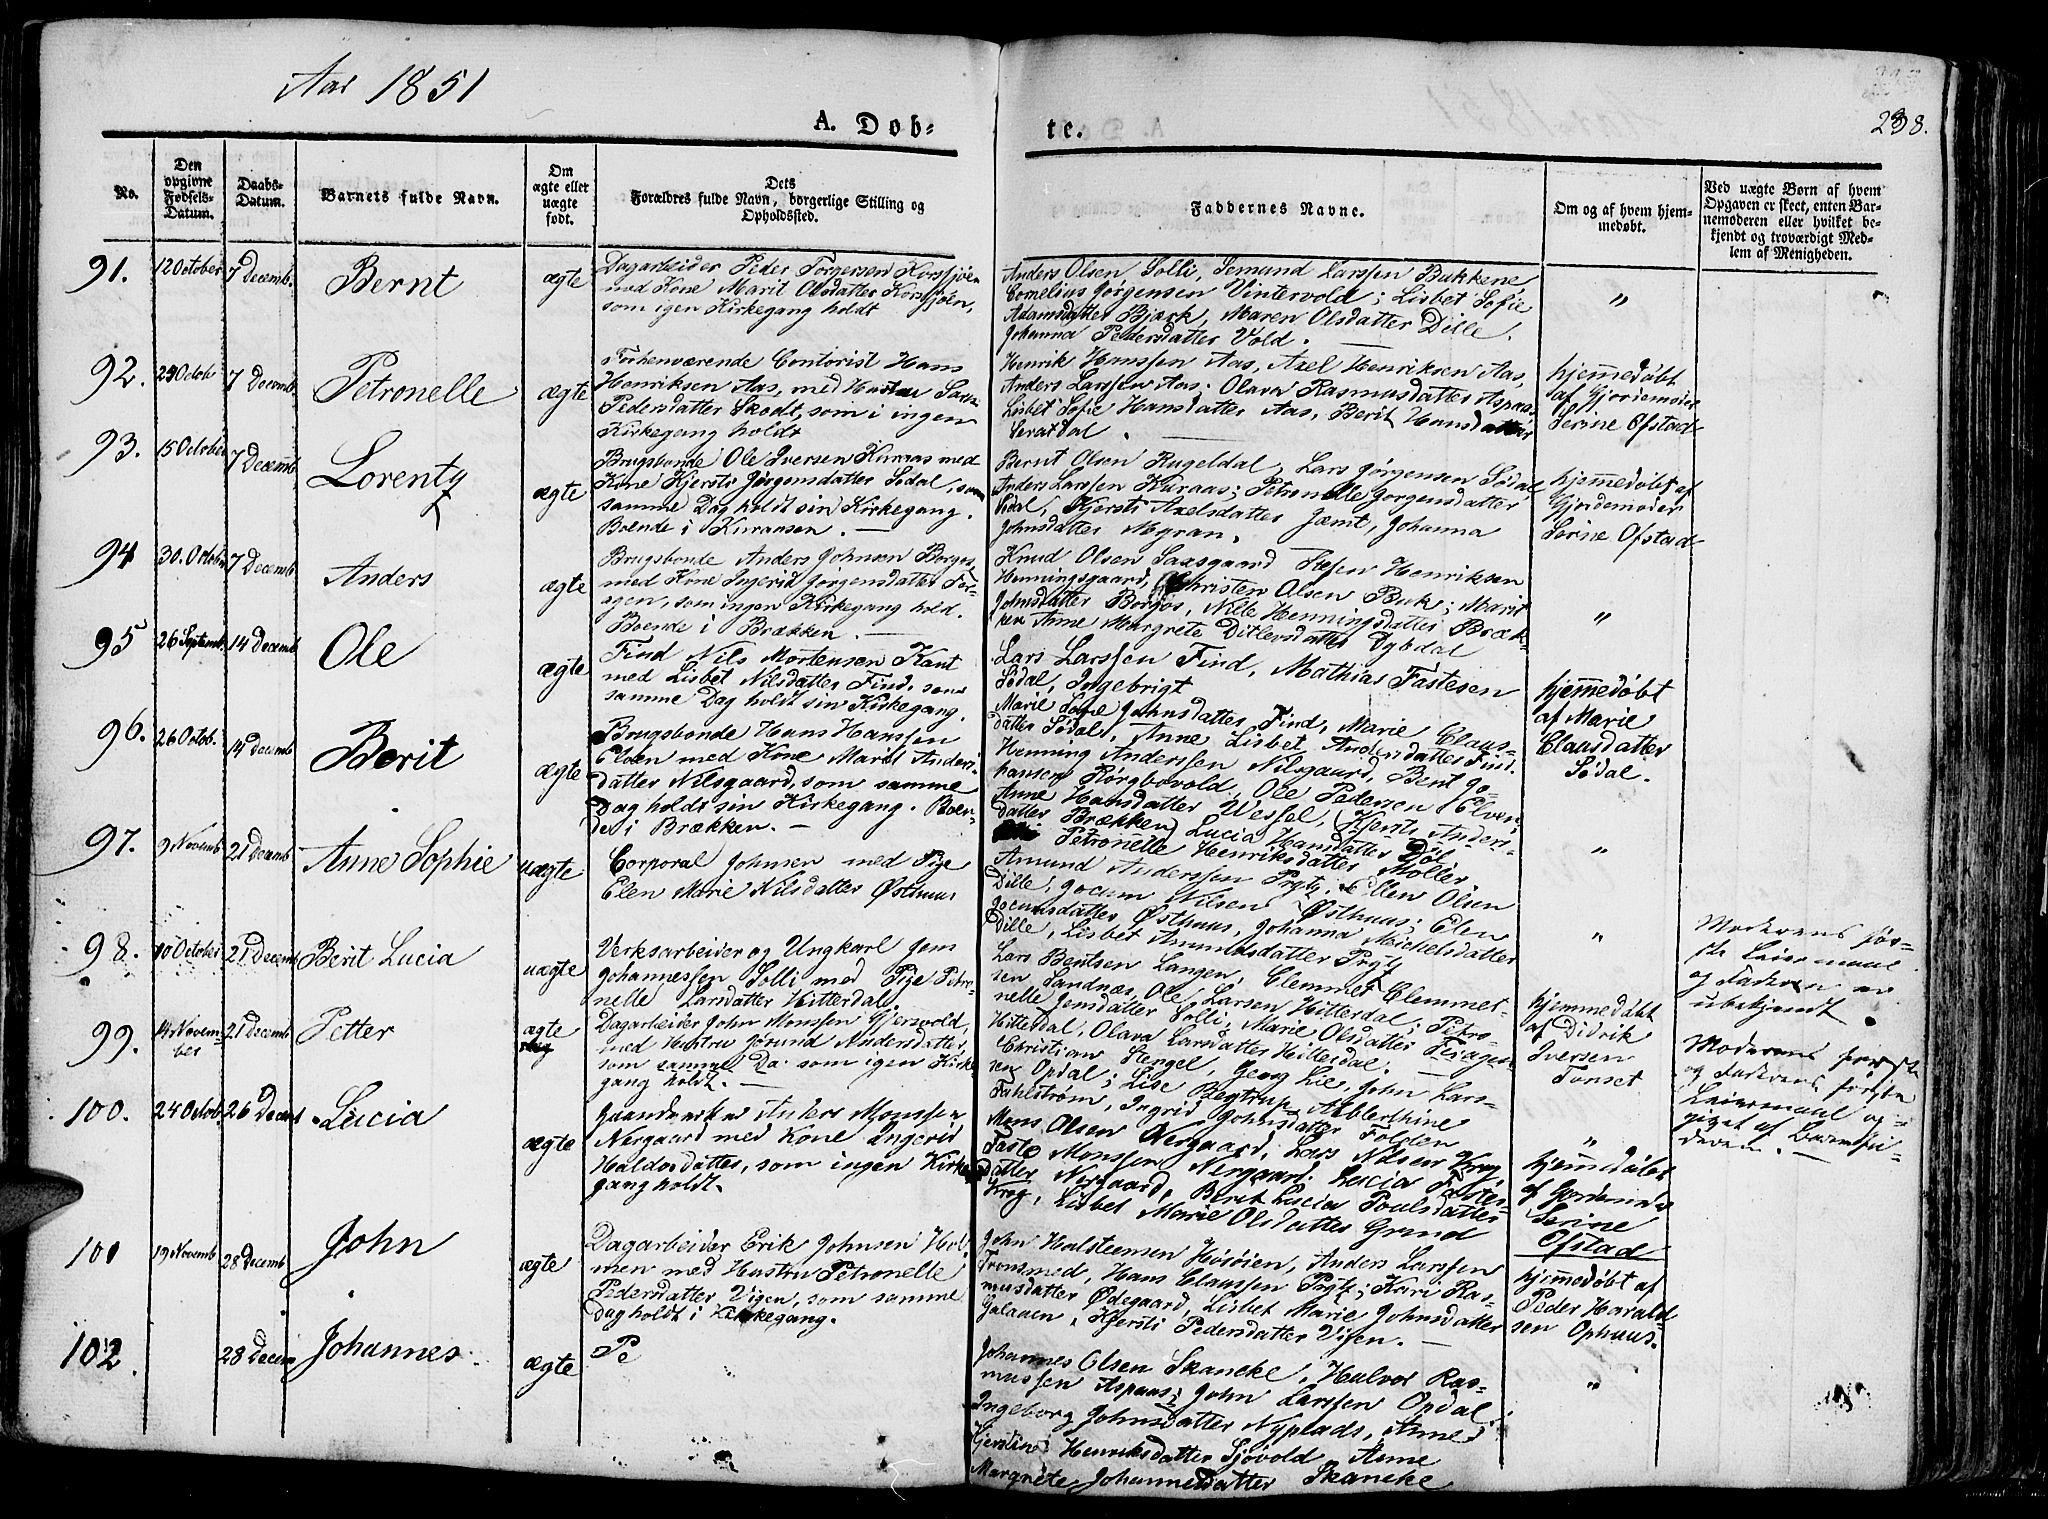 Aar 1851
A. Døb-
te.
238.
No.
Den opgivne Fødsels-Datum.
Daabs-Datum.
Barnets fulde Navn.
Om ægte eller uægte født.
Dets
Forældres fulde Navn, borgerlige Stilling og
Opholdssted.
Faddernes Navne.
Om og af hvem hjem-
medøbt.
Ved uægte Børn af hvem
Opgaven er skeet, enten Bar-
nemoderen eller hvilket be-
kjendt og troværdigt Med-
lem af Menigheden.
91. 12 October 7 Decemb. Bernt ægte
Dagarbeider Peder Torgersen Korssjøen
med Kone Marit Olsdatter Korssjøen,
som igen Kirkegang holdt
Anders Olsen Solli, Semund Larssen Bakkene,
Cornelius Jørgensen Vintervold; Lisbet Sofie
Adamsdatter Bjørk, Maren Olsdatter Dille,
Johanna Pedersdatter Vold. —
"
92. 29 Octob 7 Decemb Petronelle ægte
Forhenværende Contorist Hans
Henriksen Aas, med Hustru Sara
Pedersdatter Skodt, som i ingen
Kirkegang holdt
Henrik Hanssen Aas, Axel Henriksen Aas,
Anders Larssen Aas. Olava Rasmusdatter Aspaas,
Lisbet Sofie Hansdatter Aas, Berit Hansdatter
hjemmedøbt
af Gjordemoder
Serine Ofstad
93. 15 October 7 Decemb Lorentz ægte
Brugsbonde Ole Iversen Kuraas med
Kone Kjersti Jørgensdatter Sødal, som
samme Dag holdt sin Kirkegang.
Boende i Kuraasen. —
Bernt Olsen Rugeldal, Lars Jørgensen Sødal
Anders Larssen Kuraas; Petronelle Jørgensdatter
Sødal, Kjersti Axelsdatter Jæmt, Johanna
Johnsdatter Myran.
hjemmedøbt af
Gjordemoder
Serine Ofstad
94 30. Octobr 7 Decemb Anders ægte
Brugsbonde Anders Johnsen Borgos
med Kone Ingerid Jørgensdatter Fer-
agen, som ingen Kirkegang hold.
Boende i Brækken. —
Knud Olsen Saxsgaard Steffen Henriksen
Henningsgaard, Christen Olsen Buk; Marit
Johnsdatter Borgos, Nille Henningsdatter Bræk-
ken Anne Margrete Ditlevsdatter Dybdal
"
95 26 Septemb. 14 Decemb Ole ægte
Find Nils Mortensen Kant
med Lisbet Nilsdatter Find, som
samme Dag holdt sin Kirkegang.
Lars Larssen Find, Mathias Fastesen
Sødal, Ingebrigt
Marie Sofie Johnsdatter Find, Marie Claus-
datter Sødal, Anne Lisbet Andersdatter Find.
hjemmedøbt
af Marie
Clausdatter
Sødal.
96. 26 Octob. 14 Decemb Berit ægte
Brugsbonde Hans Hanssen
Elven med Kone Marit Anders-
datter Nilsgaard, som samme
Dag holdt sin Kirkegang. Boen-
de i Brækken. —
Henning Anderssen Nilsgaard, Bent Jo-
hansen Borgbovold, Ole Pedersen Elven,
Anne Hansdatter Wessel, Kjersti Anders-
datter Brækken, Lucia Hansdatter Døl
"
97. 9 Novemb 21 Decemb Anne Sophie uægte
Corporal Johnsen med Pige
Elen Marie Nilsdatter Østhuus
Petronelle Henriksdatter Møller
Amund Anderssen Prytz, Ellen Olsen
Dille, Jocum Nilsen Østhuus; Elen
Jocumsdatter Østhuus, Johanna Michelsdatter
Dille, Lisbet Amundsdatter Prytz
"
Moderens før-
ste Leiermaal
og Faderen er
ubekjendt.
98. 10 October 21 Decemb Berit Lucia uægte
Verksarbeider og Ungkarl Jens
Johannessen Solli med Pige Petro-
nelle Larsdatter Hitterdal.
Lars Bentsen Langen, Clemmet Clemmet-
sen Sandnæs, Ole Larsen Hitterdal; Petro-
nelle Jensdatter Solli; Marie Olsdatter Feragen
Hitterdal, Olava Larsdatter Hitterdal.
Moderens første
og Faderens første
Leiermaal og
99. 14 Novem-
ber 21 Decemb Petter ægte
Dagarbeider John Monssen Gjersvold,
med Hustru Jørund Andersdatter,
som samme Da. som igen Kirke
gang holdt. —
Christian Sengel, Georg Lie, John Lars-
sen Opdal; Lise Begtrup, Abblethine
Fahlstrøm, Ingrid Johnsdatter Folden
hjemmedøbt
af Didrik
Iversen
Tonset
100. 24 Octob. 26 Decemb Lucia ægte
Gaardmand Anders Monssen
Nergaard med Kone Ingerid
Haldorsdatter, som ingen Kirke
gang holdt.
Mons Olsen Nergaard, Lars Nilsen Krog,
Faste Monssen Nergaard; Lucia Fastes-
datter Nergaard, Beret Lucia Poulsdatter
Krog, Lisbet Marie Olsdatter Grind
"
hjemmedøbt
af Gjordemoder
Serine
Ofstad
101 19 Novemb 28 Decemb John ægte
Dagarbeider Erik Johnsen Hol-
men med Hustru Petronelle
Pedersdatter Vigen, som samme
Dag holdt i Kirkegang.
John Halsteensen Høsøien, Anders Larssen
Tronsmed, Hans Claussen Prytz; Kari Ras-
musdatter Ødegaard, Lisbet Marie Johnsdatter
Galaaen, Kjersti Pedersdatter Vigen. —
hjemmedøbt af
Peder Harald-
sen Ophuus.
102. 28 Decem Johannes. ægte
Pe
Johannes Olsen Skancke, Halvor Ras-
mussen Aspaas; John Larssen Opdal;
Ingeborg Johnsdatter Nyplads, Anne
Kjerstine Henriksdatter Sjøvold Anne
Margrete Johannesdatter Skancke
"